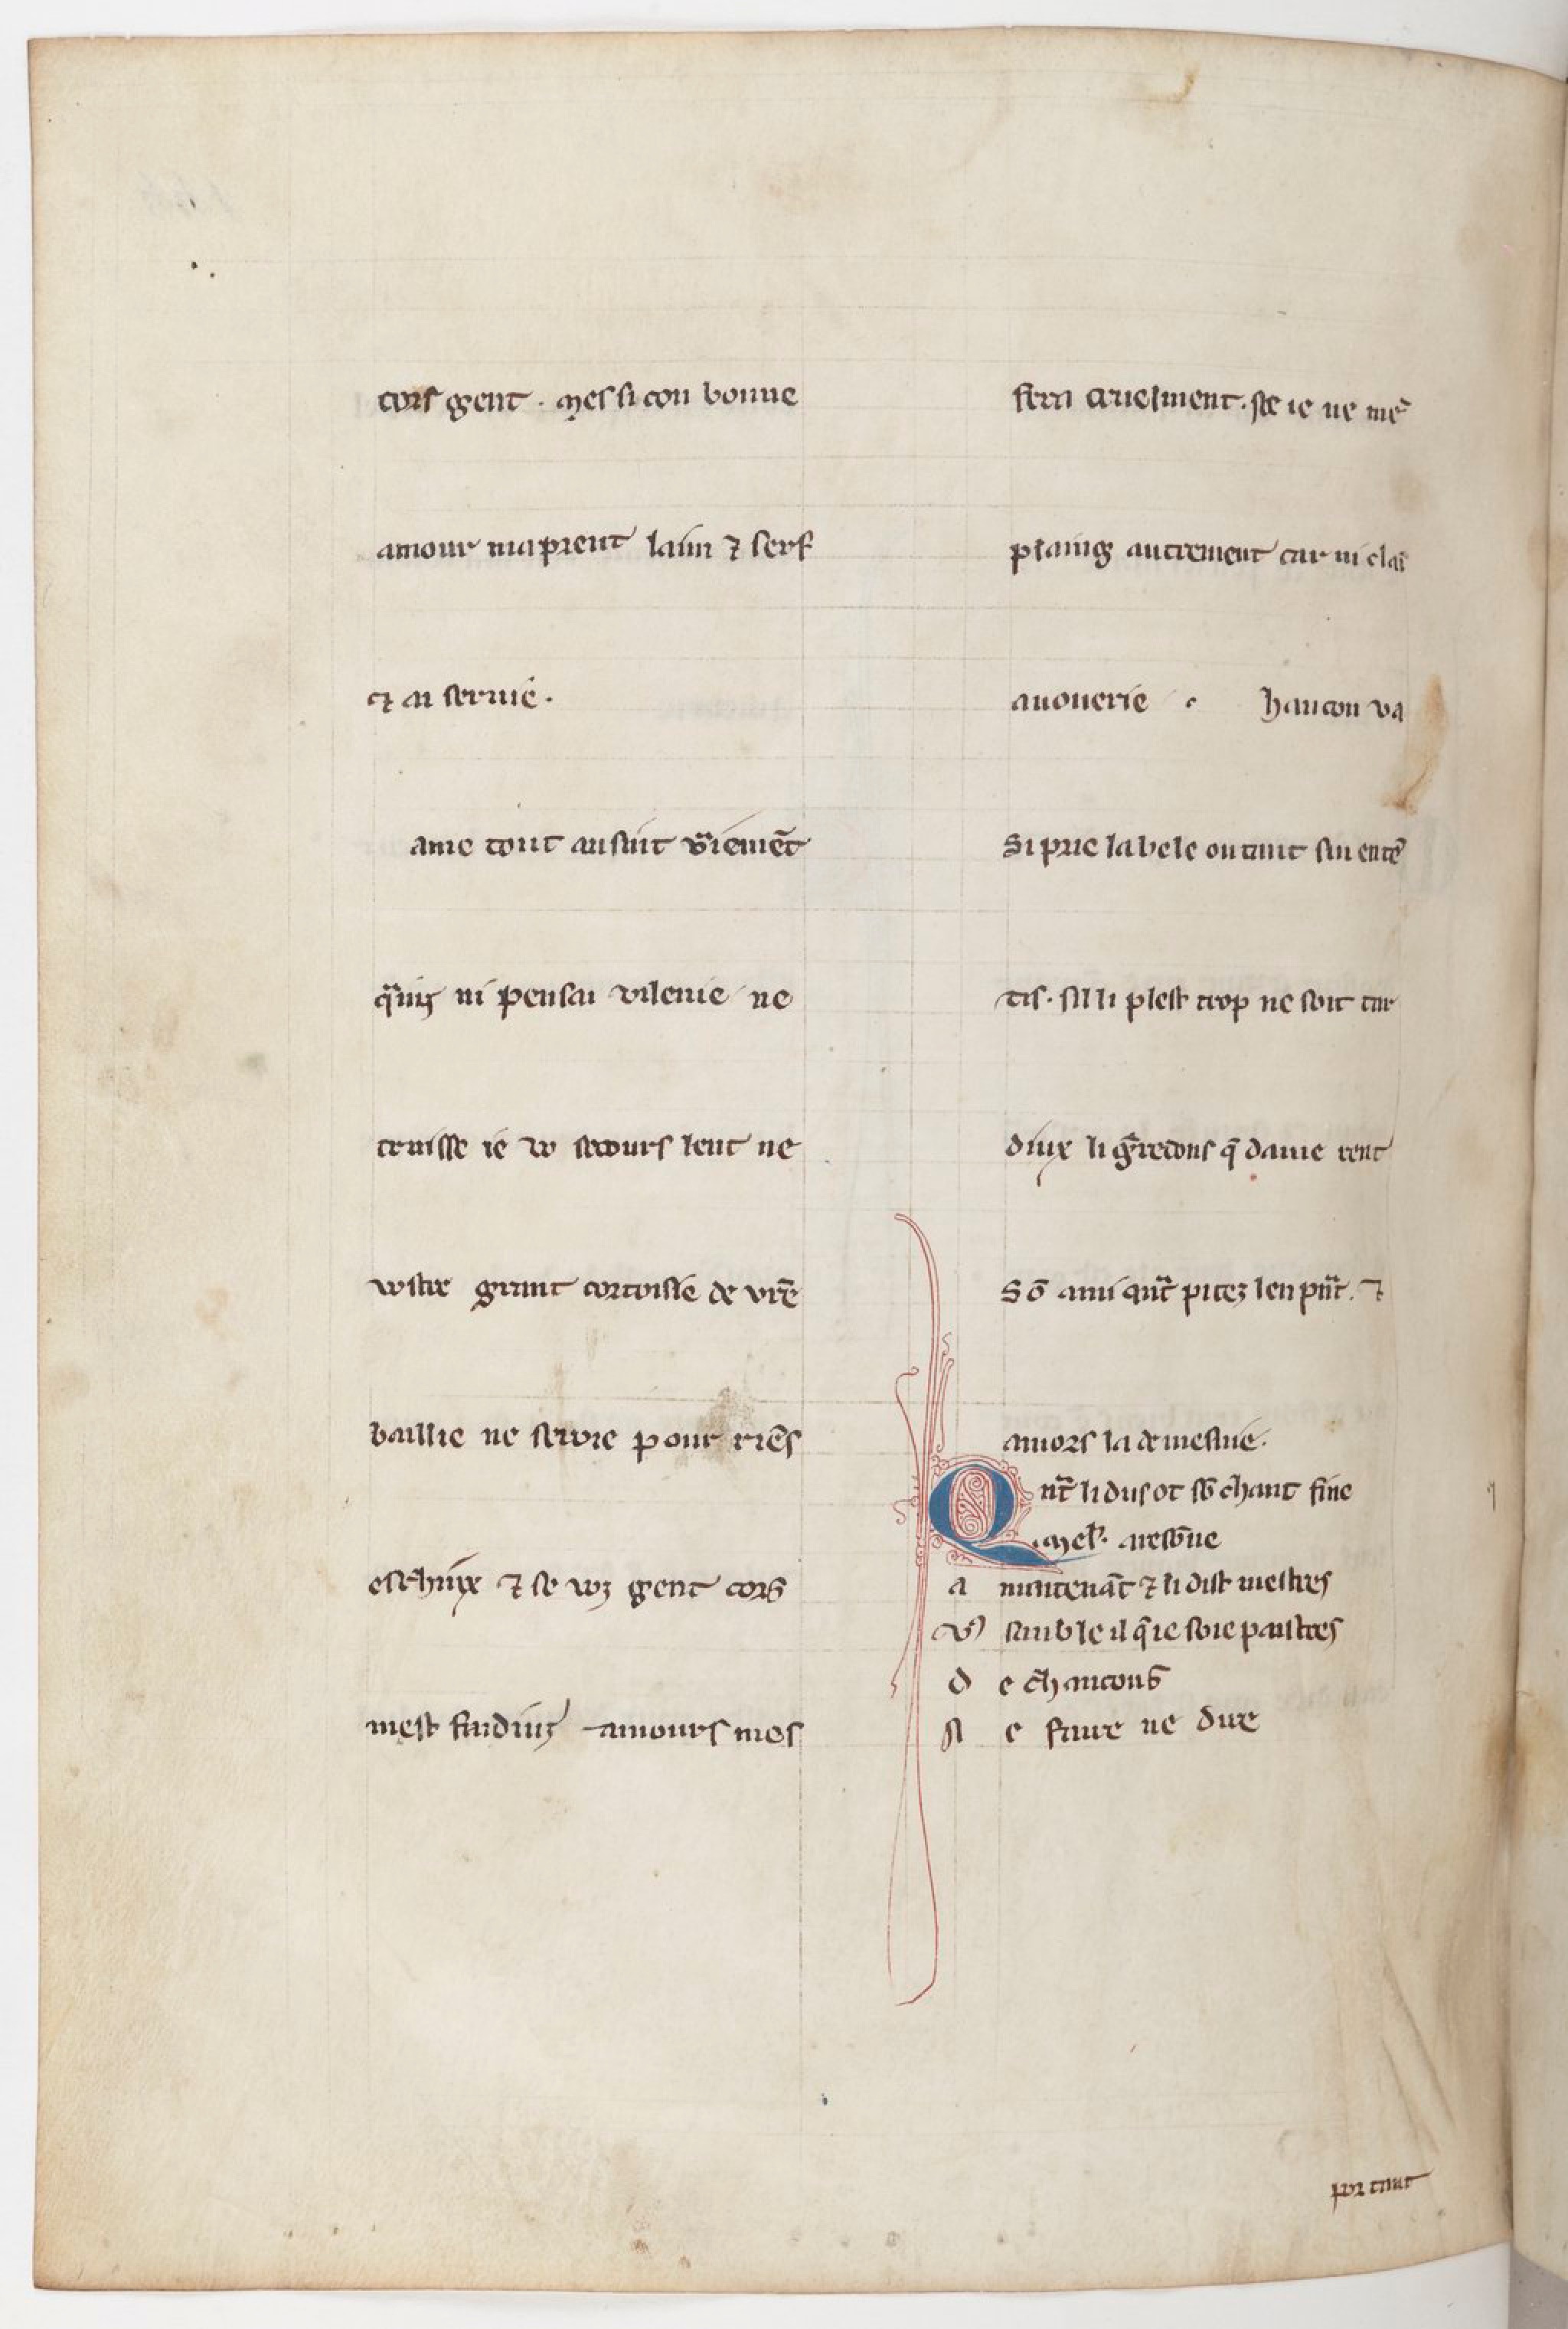 cors gent . mes si con bonne
amour maprent laim ⁊ serf
⁊ ai seruie .
ame tout ausint v̾iemēt
q̃uiꝫ ni pensai vilenie ne
truisse ie vo secours lent ne
vostre grant cortoisie de vr̄e
baillie ne seroie pour riēs
eschiux ⁊ se voꝫ gent cors
mest faidiuꝫ amours mes
fera cruelment . se ie ne mē
plaing autrement car ni clai
auouerie . hancon va
si prie la bele ou tant sui entē
tis . sil li plest trop ne soit tar
diux li g̃redons q̄ dame rent
sō ami qn̄t pitez len pn̄t . ⁊
amors la demesnie .
Q nt̄ li dus ot sō chant fine
.mel'. aresōne
a maintenāt ⁊ li dist mestres
v' samble il q̄ ie soie paistres
d e chancons
d e faire ne dire
por tant